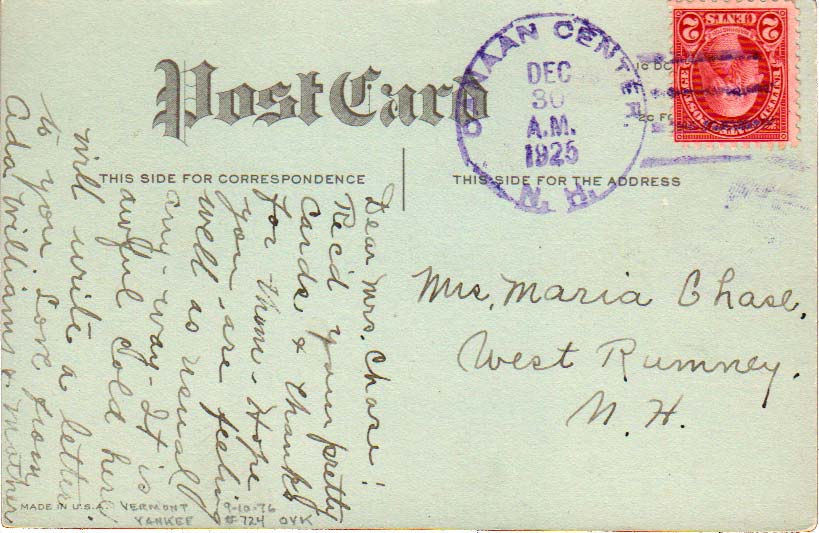 Post Card
THIS SIDE FOR CORRESPONDENCE
THIS SIDE FOR THE ADDRESS
CANAAN CENTER.
N.H.
DEC
30
A.M.
1925
1¢ DO
2¢ FO
2 CENTS 2
Dear Mrs. Chase!
Rec'd your pretty
Cards & thanks
for them - Hope
you are feeling
well as usual
any-way - It is
awful Cold here!
will write a letter
to you Love from
Ada Williams & Mother
Mrs. Maria Chase.
West Rumney.
N. H.
MADE IN U.S.A.
VERMONT
YANKEE
9-10-76
#724 OYK